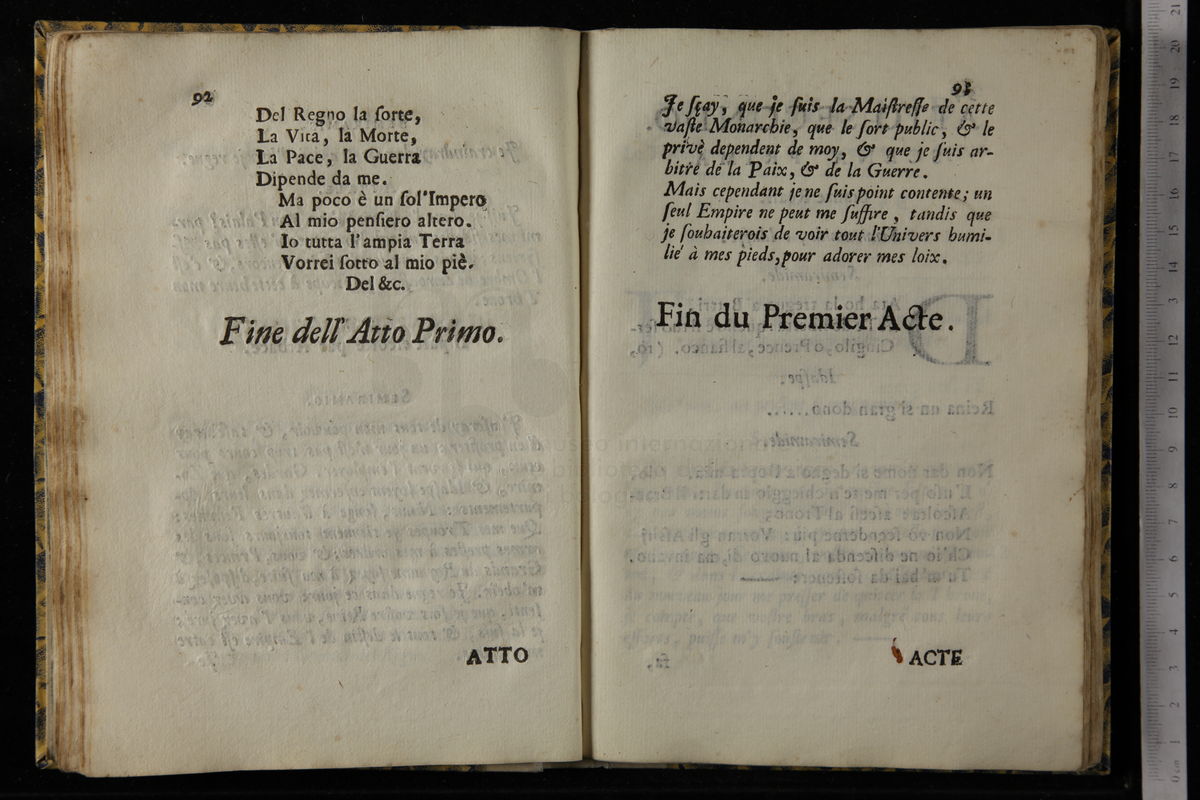 92
Del Regno la ſorte,
La Vita, la Morte,
La Pace, la Guerra
Dipende da me.
Ma poco è un ſol'Impero
Al mio penſiero altero.
Io tutta l'ampia Terra
Vorrei ſotto al mio piè.
Del &c.
Fine dell' Atto Primo.
ATTO
93
Je ſçay, que je ſuis la Maiſtreſſe de cette
vaſte Monarchie, que le ſort public, & le
privè dependent de moy, & que je ſuis ar-
bitre de la Paix, & de la Guerre.
Mais cependant je ne ſuis point contente; un
ſeul Empire ne peut me ſuffire, tandis que
je ſouhaiterois de voir tout l'Univers humi-
lié à mes pieds, pour adorer mes loix.
Fin du Premier Acte.
ACTE